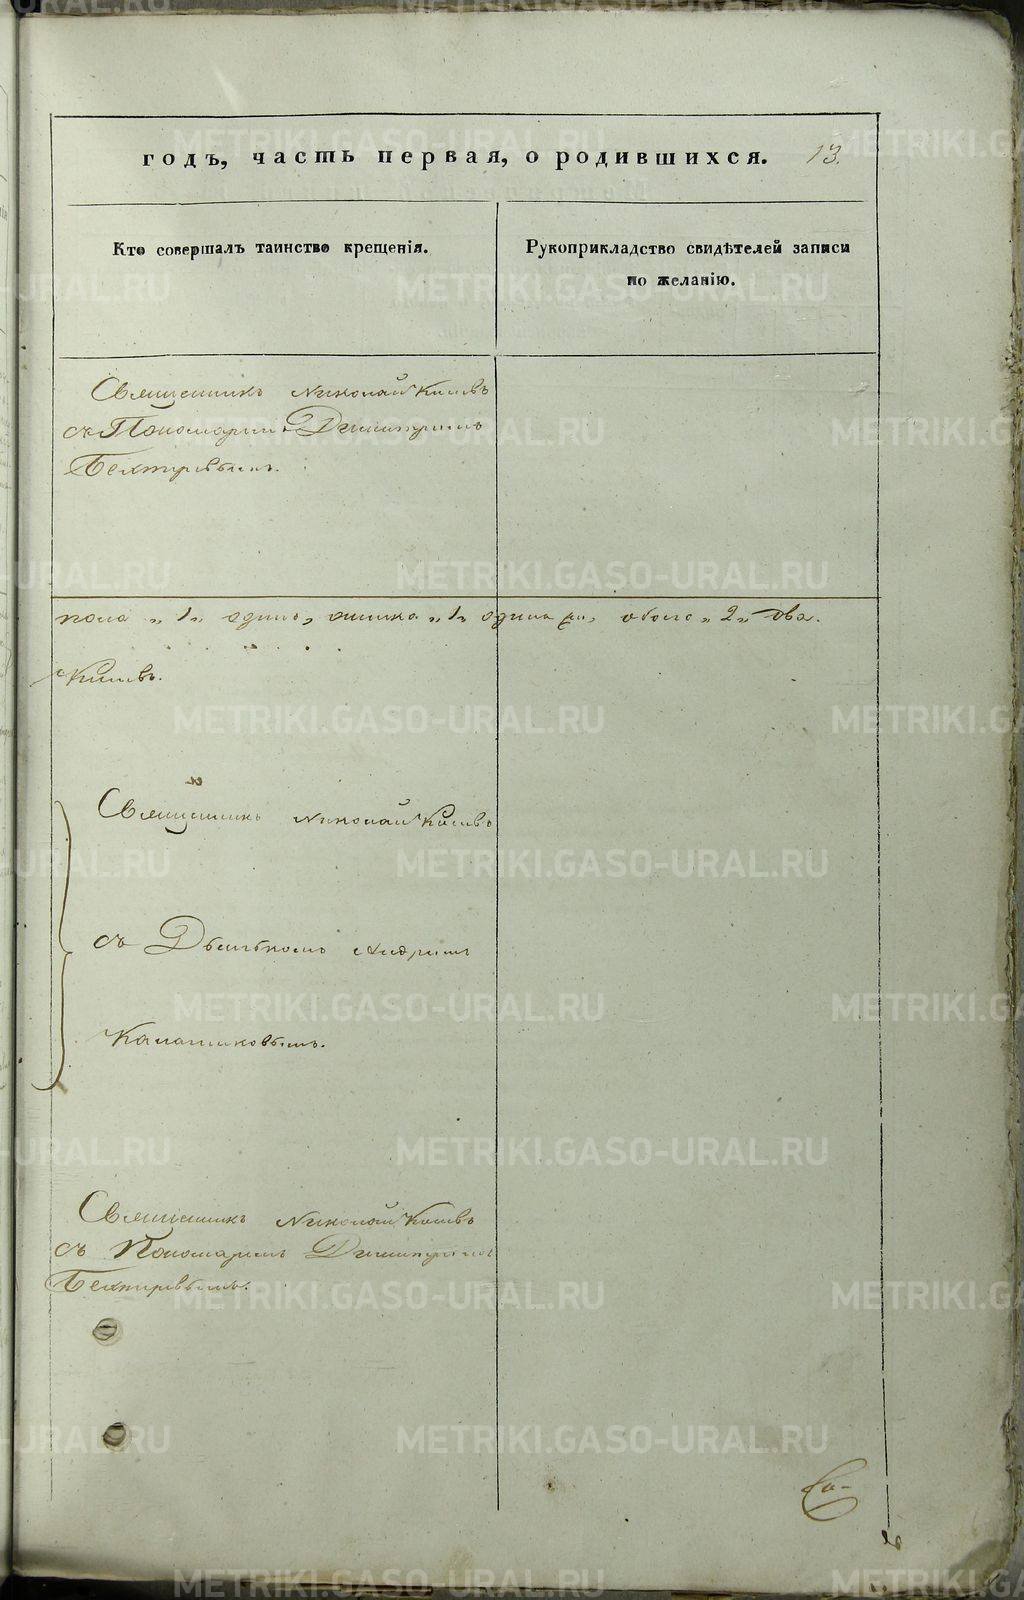 годъ, часть первая, о родившихся. 13.
Кто совершалъ таинство крещенія.
Рукоприкладство свидѣтелей записи
по желанію.
Священникъ Николай
съ Пономаремъ Димитріемъ
Бехтеревымъ.
пола „1„ одинъ, женска „1„ одна, обоего „2„ два.
Священникъ Николай
съ Дьячькомъ Андреемъ
Калашниковымъ.
Священникъ Николай
съ Пономаремъ Димитріемъ
Бехтеревымъ.
METRIKI.GASO-URAL.RU